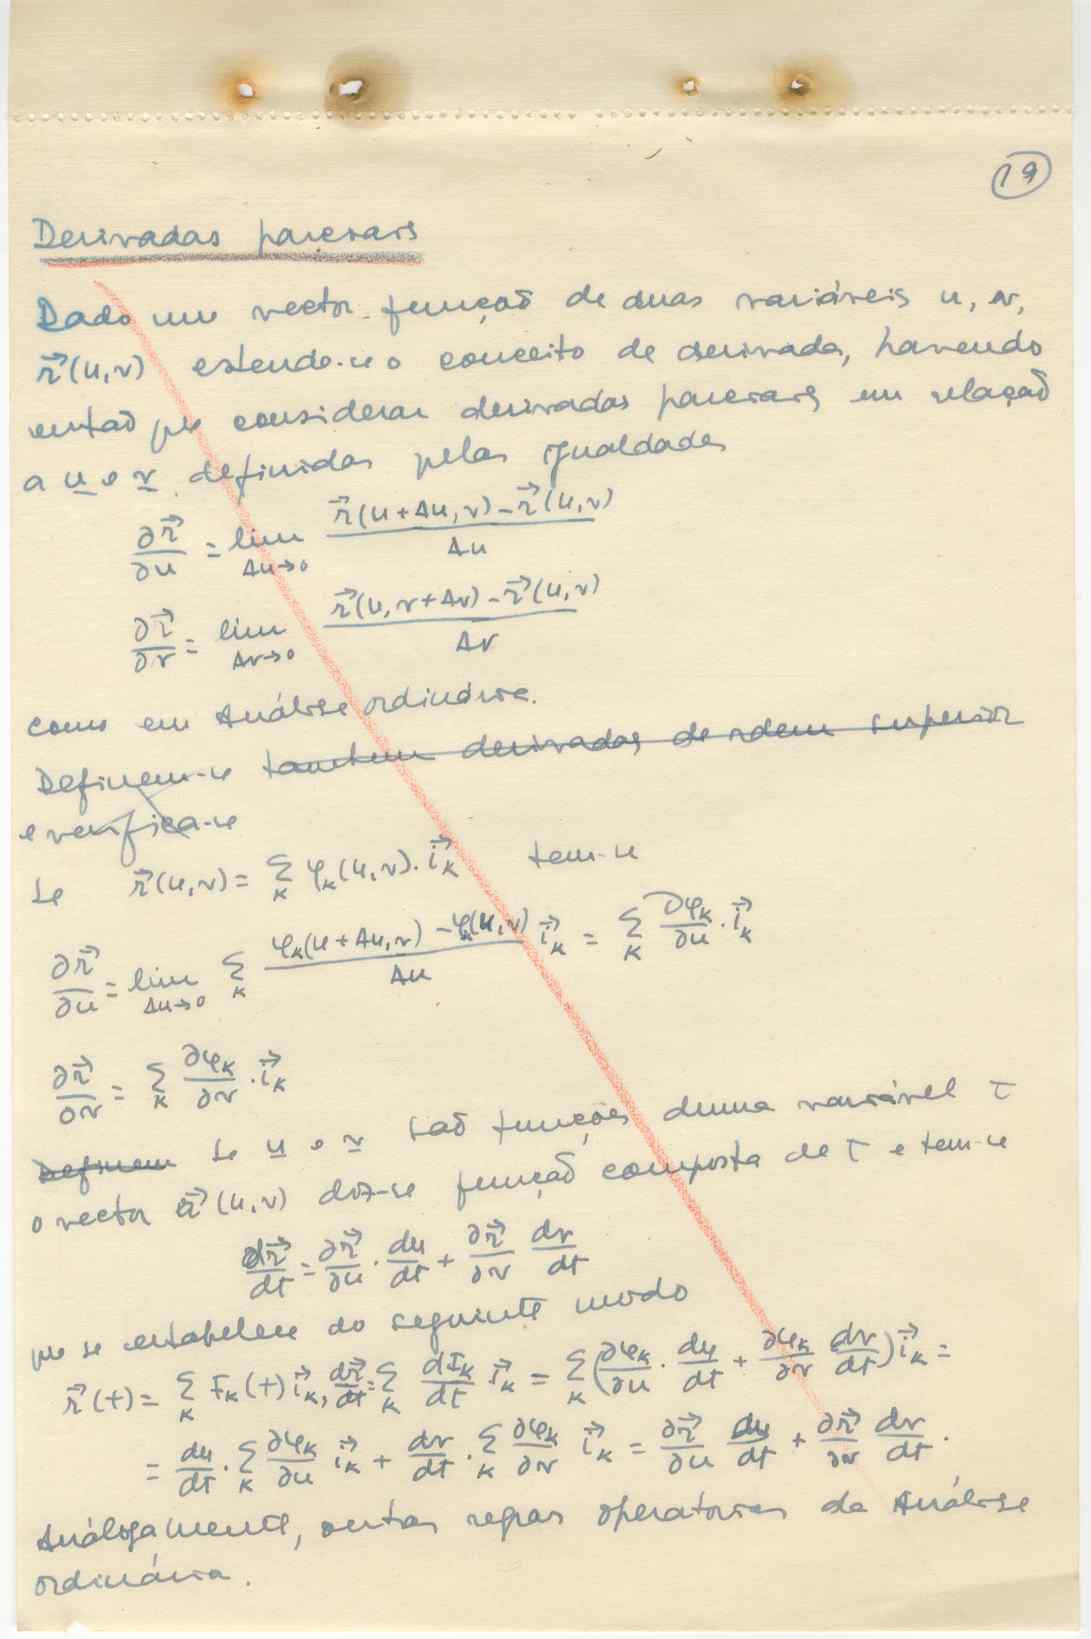 19
Derivadas parciais
Dado um vector função de duas variáveis u, v,
$\vec{r}(u,v)$ estende-se o conceito de derivada, havendo
então que considerar derivadas parciais em relação
a u e v definidas pelas igualdades
$\frac{\partial \vec{r}}{\partial u} = \lim_{\Delta u \to 0} \frac{\vec{r}(u+\Delta u, v) - \vec{r}(u,v)}{\Delta u}$
$\frac{\partial \vec{r}}{\partial v} = \lim_{\Delta v \to 0} \frac{\vec{r}(u, v+\Delta v) - \vec{r}(u,v)}{\Delta v}$
como em Análise ordinária.
Definem-se também derivadas de ordem superior
e verifica-se
Se $\vec{r}(u,v) = \sum_K \varphi_K(u,v) \cdot \vec{i}_K$ tem-se
$\frac{\partial \vec{r}}{\partial u} = \lim_{\Delta u \to 0} \sum_K \frac{\varphi_K(u+\Delta u, v) - \varphi_K(u,v)}{\Delta u} \vec{i}_K = \sum_K \frac{\partial \varphi_K}{\partial u} \cdot \vec{i}_K$
$\frac{\partial \vec{r}}{\partial v} = \sum_K \frac{\partial \varphi_K}{\partial v} \cdot \vec{i}_K$
Definem Se u e v são funções duma variável t
o vector $\vec{r}(u,v)$ diz-se função composta de t e tem-se
$\frac{d\vec{r}}{dt} = \frac{\partial \vec{r}}{\partial u} \cdot \frac{du}{dt} + \frac{\partial \vec{r}}{\partial v} \frac{dv}{dt}$
que se estabelece do seguinte modo
$\vec{r}(t) = \sum_K F_K(t) \vec{i}_K, \frac{d\vec{r}}{dt} = \sum_K \frac{dF_K}{dt} \vec{i}_K = \sum_K \left( \frac{\partial \varphi_K}{\partial u} \cdot \frac{du}{dt} + \frac{\partial \varphi_K}{\partial v} \frac{dv}{dt} \right) \vec{i}_K =$
$= \frac{du}{dt} \cdot \sum_K \frac{\partial \varphi_K}{\partial u} \vec{i}_K + \frac{dv}{dt} \cdot \sum_K \frac{\partial \varphi_K}{\partial v} \vec{i}_K = \frac{\partial \vec{r}}{\partial u} \frac{du}{dt} + \frac{\partial \vec{r}}{\partial v} \frac{dv}{dt}.$
Análogamente, outras regras operatórias da Análise
ordinária.